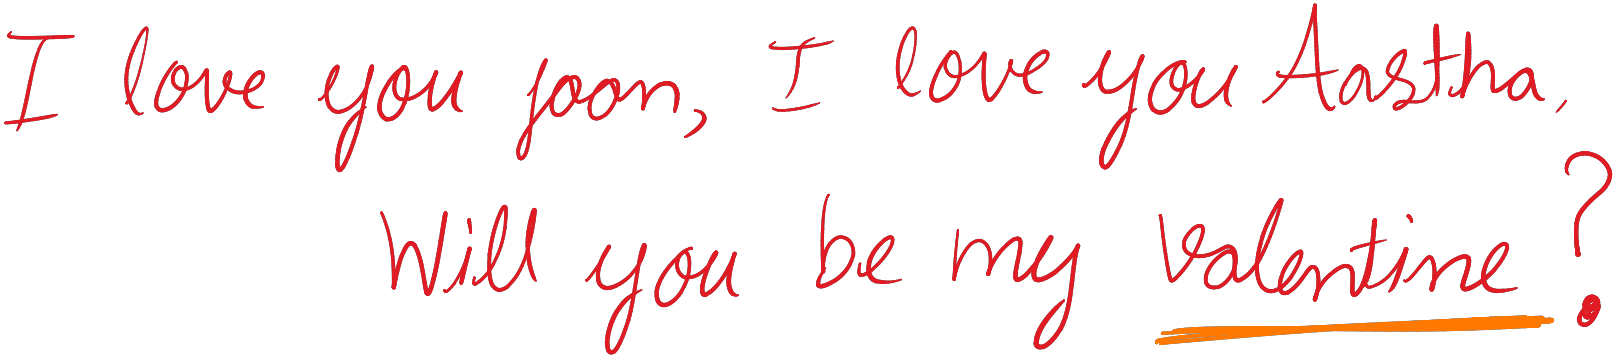 I love you joon, I love you Aastha,
Will you be my Valentine?